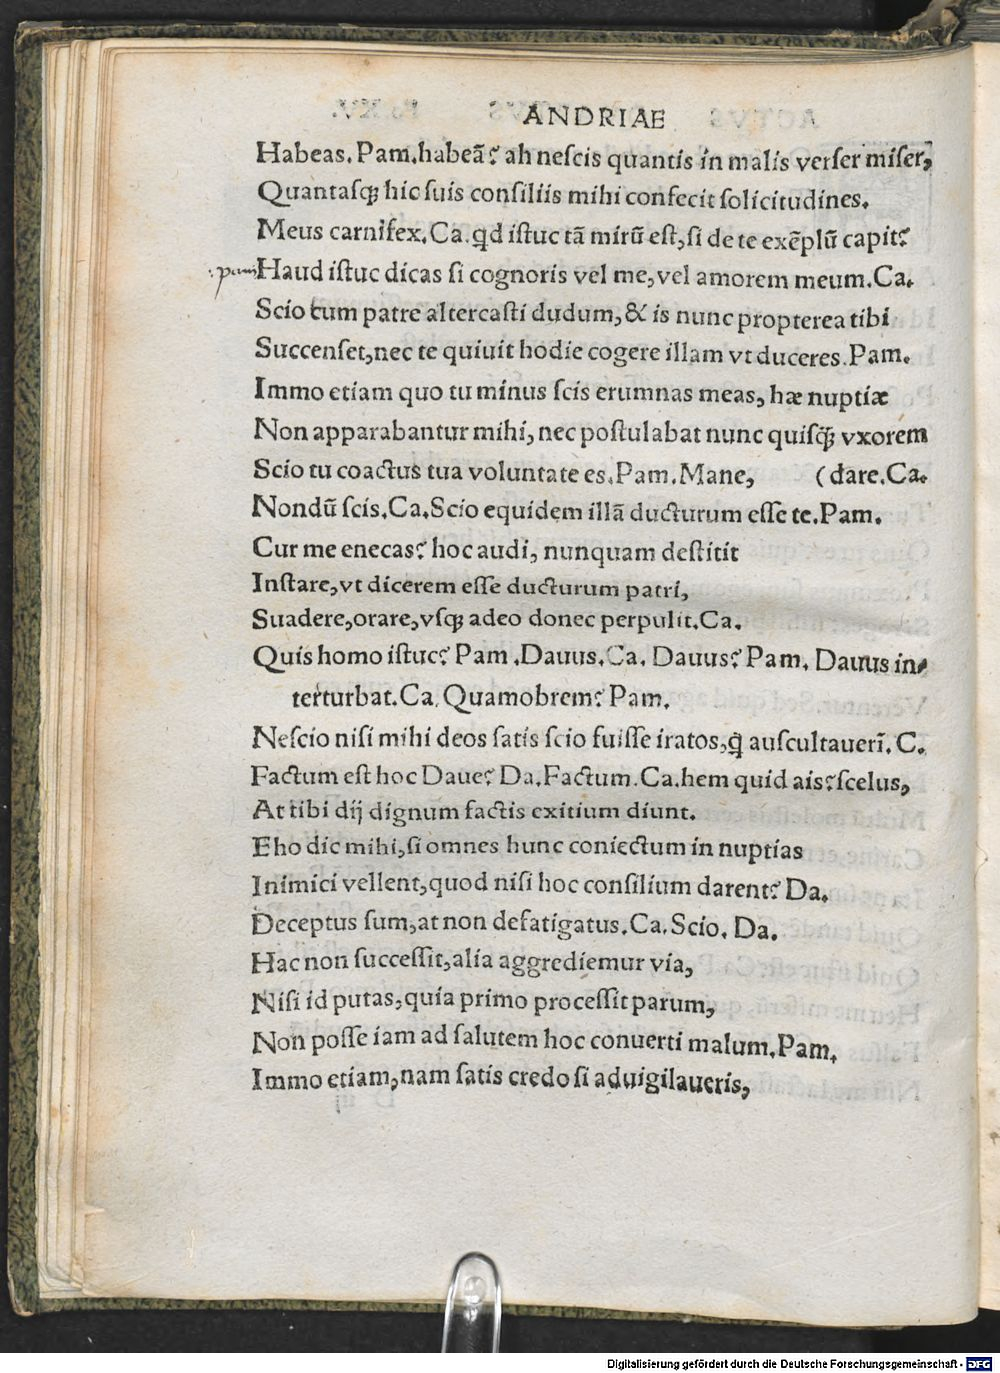 ANDRIAE
Habeas. Pam. habeā? ah nescis quantis in malis verser miser,
Quantasqꝫ hic suis consiliis mihi confecit solicitudines.
Meus carnifex. Ca. qd istuc tā mirū est, si de te exēplū capit?
.pam. Haud istuc dicas si cognoris vel me, vel amorem meum. Ca.
Scio cum patre altercasti dudum, & is nunc propterea tibi
Succenset, nec te quiuit hodie cogere illam vt duceres. Pam.
Immo etiam quo tu minus scis erumnas meas, hæ nuptiæ
Non apparabantur mihi, nec postulabat nunc quisqꝫ̄ vxorem
Scio tu coactus tua voluntate es. Pam. Mane, (dare. Ca.
Nondū scis. Ca. Scio equidem illā ducturum esse te. Pam.
Cur me enecas? hoc audi, nunquam destitit
Instare, vt dicerem esse ducturum patri,
Suadere, orare, vsqꝫ adeo donec perpulit. Ca.
Quis homo istuc? Pam. Dauus. Ca. Dauus? Pam. Dauus in-
terturbat. Ca. Quamobrem? Pam.
Nescio nisi mihi deos satis scio fuisse iratos, q̄ auscultauerī. C.
Factum est hoc Daue? Da. Factum. Ca. hem quid ais? scelus,
At tibi dij dignum factis exitium diunt.
Eho dic mihi, si omnes hunc coniectum in nuptias
Inimici vellent, quod nisi hoc consilium darent? Da.
Deceptus sum, at non defatigatus. Ca. Scio. Da.
Hac non successit, alia aggrediemur via,
Nisi id putas, quia primo processit parum,
Non posse iam ad salutem hoc conuerti malum. Pam.
Immo etiam, nam satis credo si aduigilaueris,
Digitalisierung gefördert durch die Deutsche Forschungsgemeinschaft - DFG